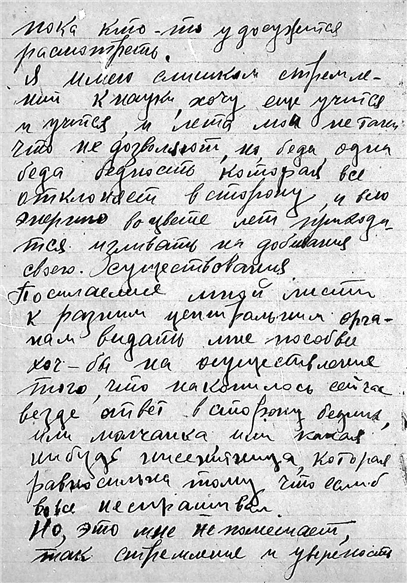 пока кто-то удосужится
расмотреть.
Я имею слишком стремле-
ний к науки, хочу еще учится
и учится, и лета мои не таки
что не дозволяют, но беда одна
беда бедность, которая все
отклоняет в сторону, и всю
энергию во цвете лет приходи-
тся изливать на добивания
своего существования
Посилаемие мной листи
к разним центральним орга-
нам видать мне пособие
хоч-бы на осуществление
того, что накопилось сейчас
везде ответ в сторону
или молчанка, или какая
нибудь писанина, которая
равносильна тому, что если б
вовсе не спрашивал.
Но, это мне не помешает,
так стремление и увереность